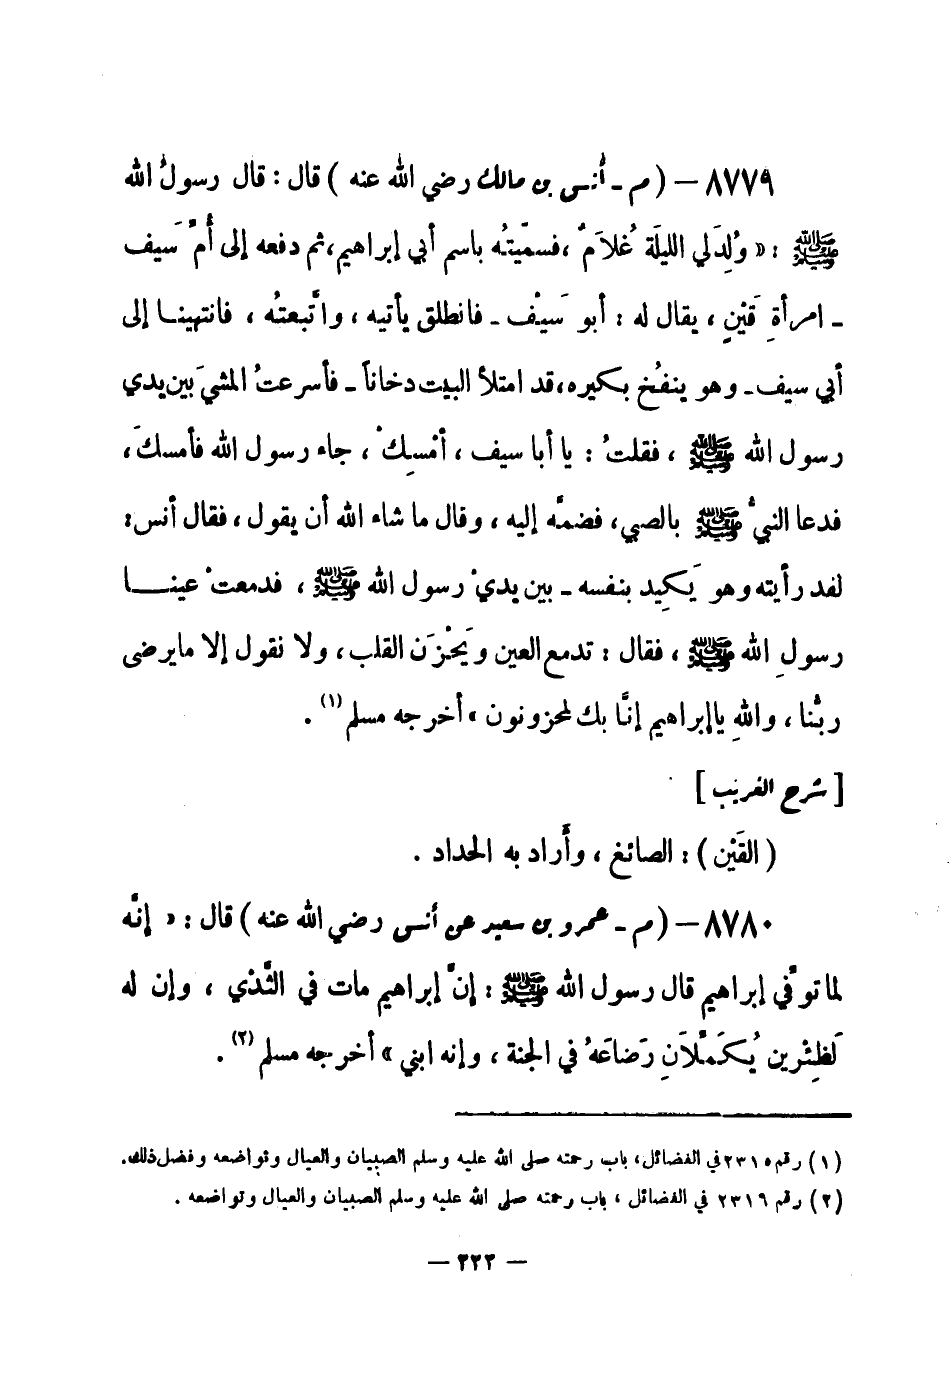 ٨٧٧٩ – ( م - أنس بن مالك رضي الله عنه ) قال : قال رسولُ الله
ﷺ : « وُلِدَلي الليلَة غُلاَمٌ ، فسمّيتُه باسم أبي إبراهيم ، ثم دفعه إلى أُمِّ سَيف
- امرأةِ قَيْنٍ ، يقال له : أبو سَيْف - فانطلق يأتيه ، واتَّبعتُه ، فانتهينا إلى
أبي سيف - وهو ينفُخ بكيره ، قد امتلأ البيت دخاناً - فأسرعتُ المشيَ بين يدي
رسول الله ﷺ ، فقلتُ : يا أبا سيف ، أمْسِكْ ، جاء رسول الله فأمسكَ ،
فدعا النبيُّ ﷺ بالصبي ، فضمَّه إليه ، وقال ما شاء الله أن يقول ، فقال أنس :
لقد رأيته وهو يَكِيد بنفسه - بين يديْ رسول الله ﷺ ، فدمعتْ عينا
رسولِ الله ﷺ ، فقال : تدمع العين ويَحْزَن القلب ، ولا نقول إلا مايرضى
ربُّنا ، واللهِ ياإبراهيم إنَّا بك لمحزونون » أخرجه مسلم (١) .
[ شرح الغريب ]
( القَيْن ) : الصائغ ، وأَراد به الحداد .
٨٧٨٠ – ( م - عمرو بن سعيد عن أنس رضي الله عنه ) قال : « إنَّه
لما توفِّي إبراهيم قال رسول الله ﷺ : إنَّ إبراهيم مات في الثَّدْي ، وإن له
لَظِئْرين يُكَمِّلاَنِ رَضاعَهُ في الجنة ، وإنه ابني » أخرجه مسلم (٢) .
(١) رقم ٢٣١٥ في الفضائل ، باب رحمته صلى الله عليه وسلم الصبيان والعيال وتواضعه وفضل ذلك .
(٢) رقم ٢٣١٦ في الفضائل ، باب رحمته صلى الله عليه وسلم الصبيان والعيال وتواضعه .
— ٢٢٢ —